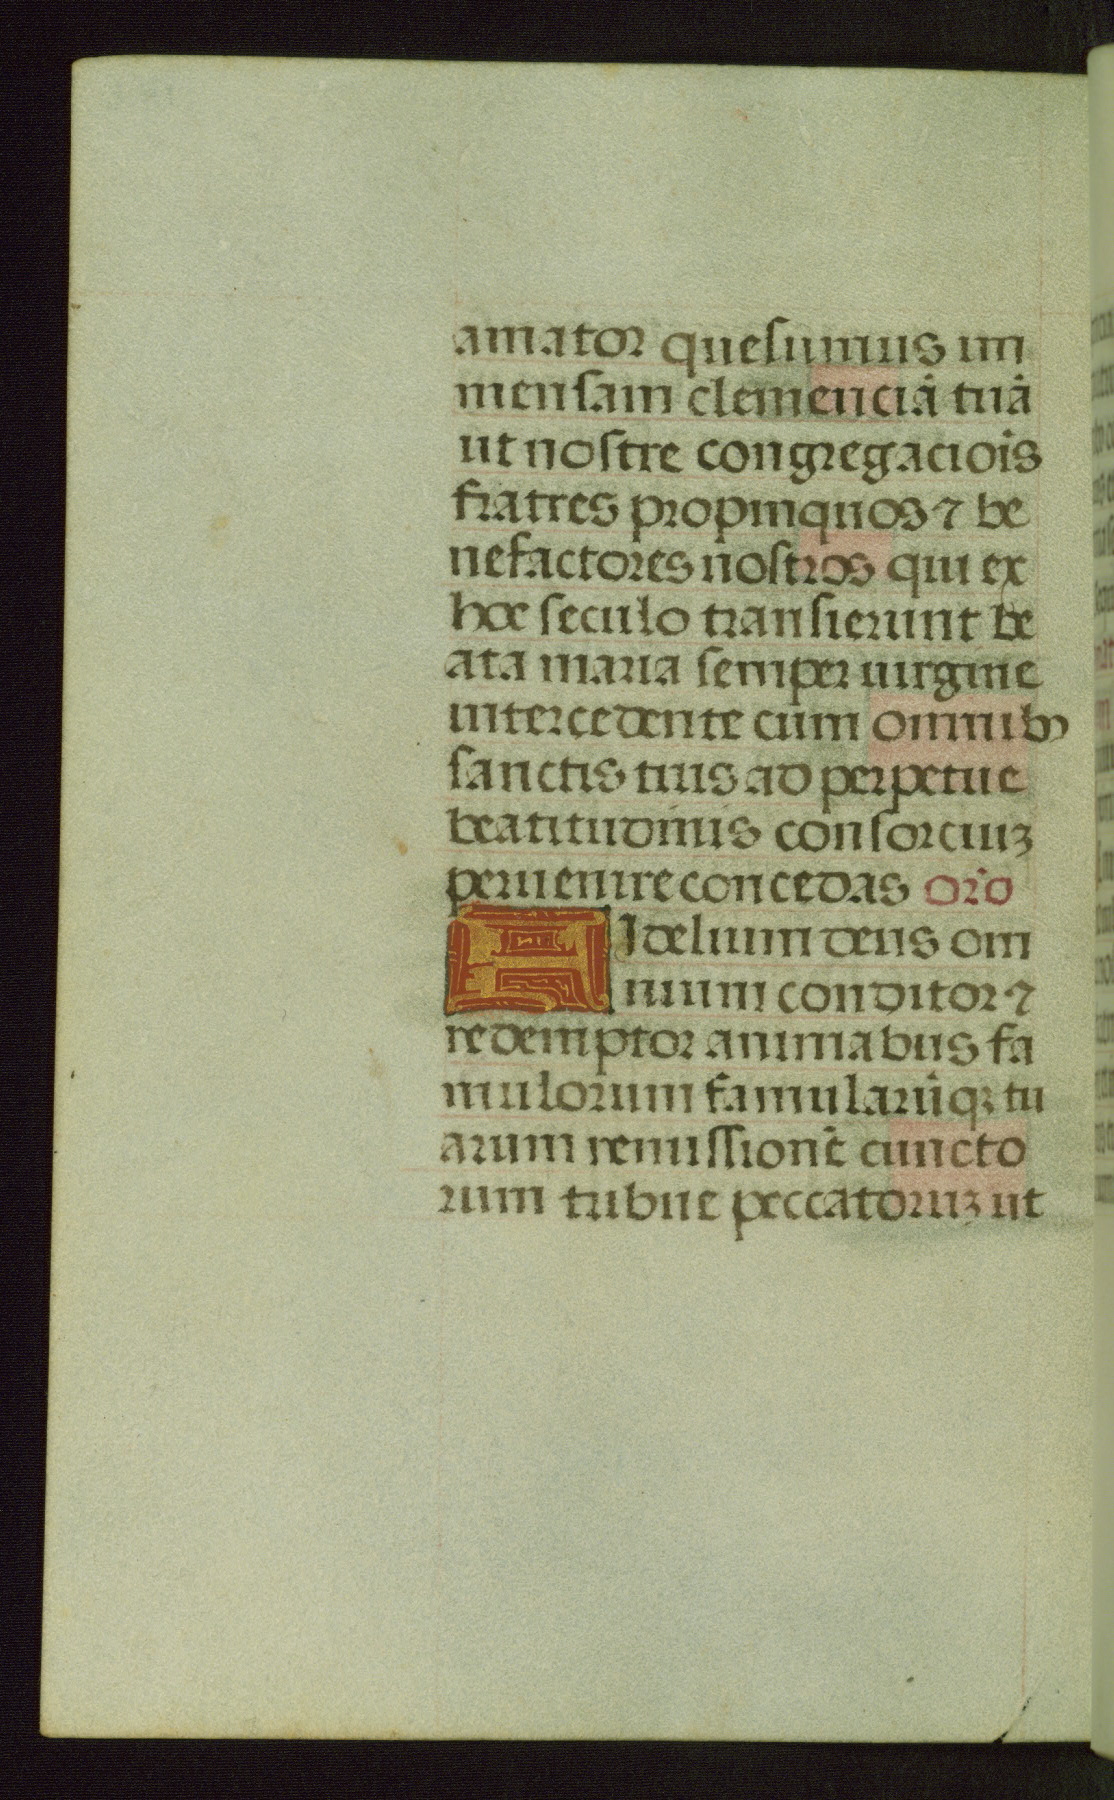 amator quesumus im
mensam clemenciā tuā
ut nostre congregaciōis
fratres propinquos ⁊ be
nefactores nostros qui ex
hoc seculo transierunt be
ata maria semper uirgine
intercedente cum omnibꝫ
sanctis tuis ad perpetue
beatitudinis consorciuꝫ
peruenire concedas or̄o
FIdelium deus om
nium conditor ⁊
redemptor animabus fa
mulorum famularūqꝫ tu
arum remissionē cuncto
rum tribue peccatoruꝫ ut